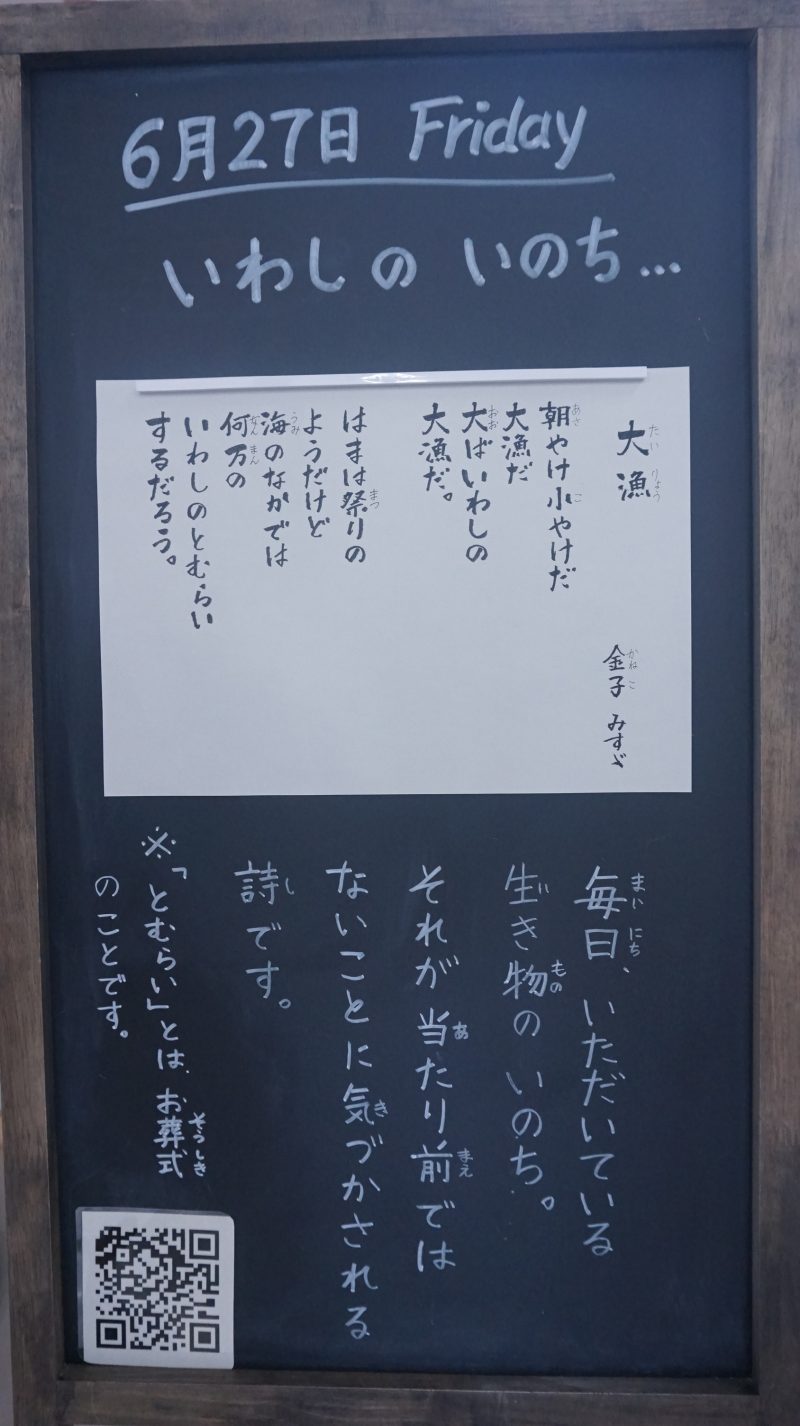 6月27日 Friday
いわしの いのち…
大漁
金子 みすゞ
朝やけ小やけだ
大漁だ
大ばいわしの
大漁だ。
はまは祭りの
ようだけど
海のなかでは
何万の
いわしのとむらい
するだろう。
毎日、いただいている
生き物の いのち。
それが 当たり前では
ないことに気づかされる
詩です。
※「とむらい」とは、お葬式
のことです。